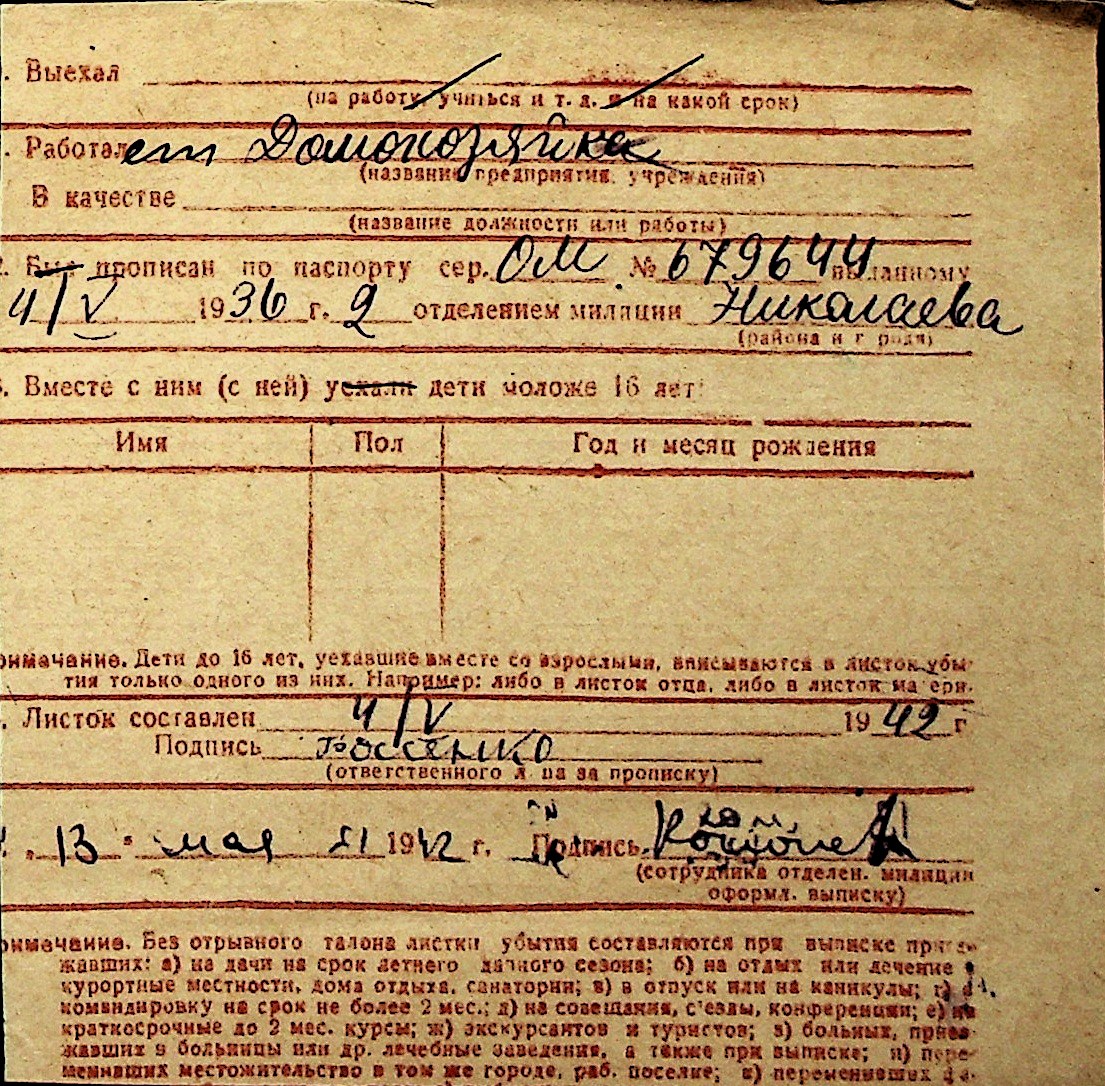 . Выехал
(на работу, учиться и т. д. и на какой срок)
. Работал ет Домохозяйка
(название предприятия, учреждения)
В качестве
(название должности или работы)
. Был прописан по паспорту сер. ОМ № 679644 выданному
4/V 1936 г. 2 отделением милиции Николаева
(района и г рода)
. Вместе с ним (с ней) уехали дети моложе 16 лет:
Имя Пол Год и месяц рождения
римечание. Дети до 16 лет, уехавшие вместе со взрослыми, вписываются в листок убы-
тия только одного из них. Например: либо в листок отца, либо в листок ма ери.
. Листок составлен 4/V 1942 г
Подпись
(ответственного л ца за прописку)
. „ 13 " мая 1942 г. Подпись
(сотрудника отделен. милиции
оформл. выписку)
римечание. Без отрывного талона листки убытия составляются при выписке
жавших: а) на дачи на срок летнего дачного сезона; б) на отдых или лечение в
курортные местности, дома отдыха, санатории; в) в отпуск или на каникулы; г) в
командировку на срок не более 2 мес.; д) на совещания, с'езды, конференции; е) на
краткосрочные до 2 мес. курсы; ж) экскурсантов и туристов; з) больных, приез-
жавших в больницы или др. лечебные заведения, а также при выписке; и) пере-
менивших местожительство в том же городе, раб. поселке; к) переменивших фа-